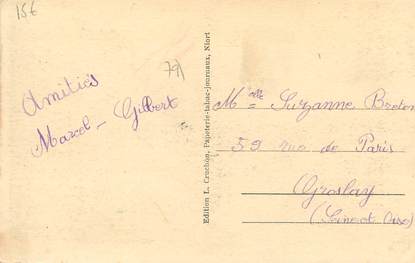 15€
79)
Amitiés
Marcel - Gilbert
Edition L. Cruchon, Papeterie-tabac-journaux, Niort
Melle Suzanne Breton
59 rue de Paris
Groslay
(Seine et Oise)